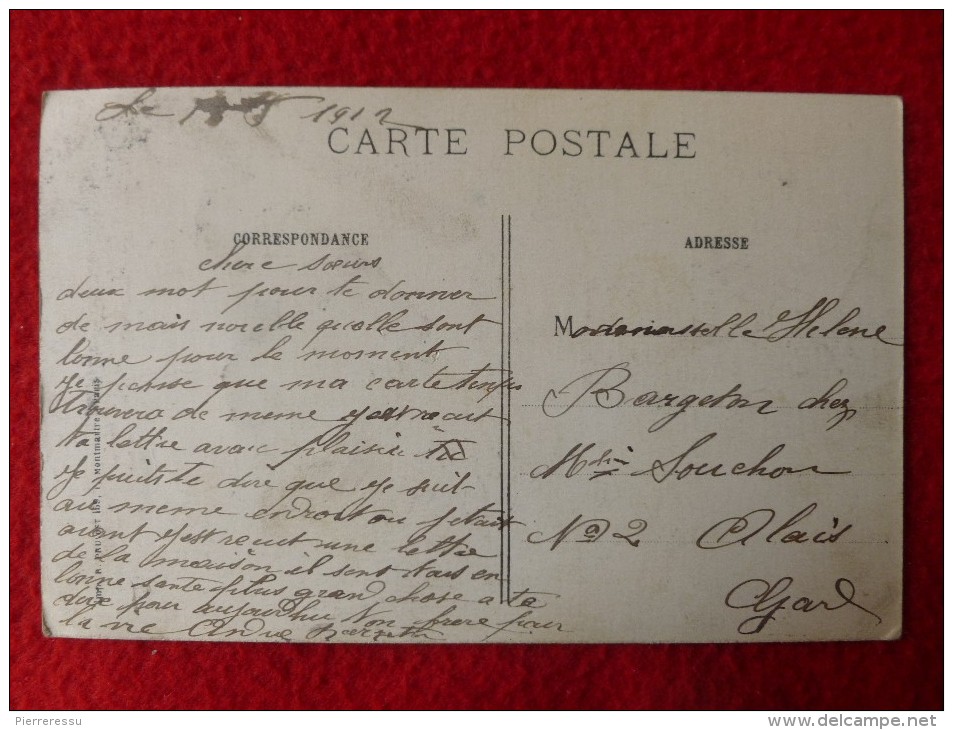 Le 1912
CARTE POSTALE
CORRESPONDANCE
chere soeurs
deux mot pour te donner
de mais nouelle qu'elle sont
bonne pour le moment
Je pense que ma carte
trouvera de meme
ta lettre avec plaisir
Je puits te dire que je suit
au meme endroit ou j'etait
avant j'est recut une lettre
de la maison il sont tous en
bonne sante plus grand chose a te
dire pour aujourdhui ton frere pour
la vie André Bargeton
ADRESSE
Mademasselle Helene
Bargeton chez
Souchon
No 2 Alais
Gard
Pierreressu
http://www.delcampe.net